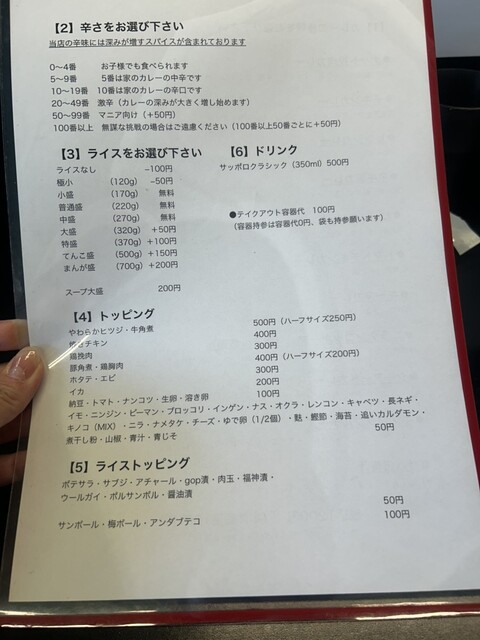 【2】辛さをお選び下さい
当店の辛味には深みが増すスパイスが含まれております
0～4番 お子様でも食べられます
5～9番 5番は家のカレーの中辛です
10～19番 10番は家のカレーの辛口です
20～49番 激辛（カレーの深みが大きく増し始めます）
50～99番 マニア向け（+50円）
100番以上 無謀な挑戦の場合はご遠慮ください（100番以上50番ごとに+50円）
【3】ライスをお選び下さい
ライスなし −100円
極小 (120g) −50円
小盛 (170g) 無料
普通盛 (220g) 無料
中盛 (270g) 無料
大盛 (320g) +50円
特盛 (370g) +100円
てんこ盛 (500g) +150円
まんが盛 (700g) +200円
スープ大盛 200円
【6】ドリンク
サッポロクラシック（350ml）500円
●テイクアウト容器代 100円
（容器持参は容器代0円、袋も持参願います）
【4】トッピング
やわらかヒツジ・牛角煮 500円（ハーフサイズ250円）
チキン 400円
鶏挽肉 300円
豚角煮・鶏胸肉 400円（ハーフサイズ200円）
ホタテ・エビ 300円
イカ 200円
納豆・トマト・ナンコツ・生卵・溶き卵 100円
イモ・ニンジン・ピーマン・ブロッコリ・インゲン・ナス・オクラ・レンコン・キャベツ・長ネギ・
キノコ（MIX）・ニラ・ナメタケ・チーズ・ゆで卵（1/2個）・麩・鰹節・海苔・追いカルダモン・
煮干し粉・山椒・青汁・青じそ 50円
【5】ライストッピング
ポテサラ・サブジ・アチャール・gop漬・肉玉・福神漬・
ウールガイ・ポルサンボル・醤油漬 50円
サンボール・梅ボール・アンダブテコ 100円